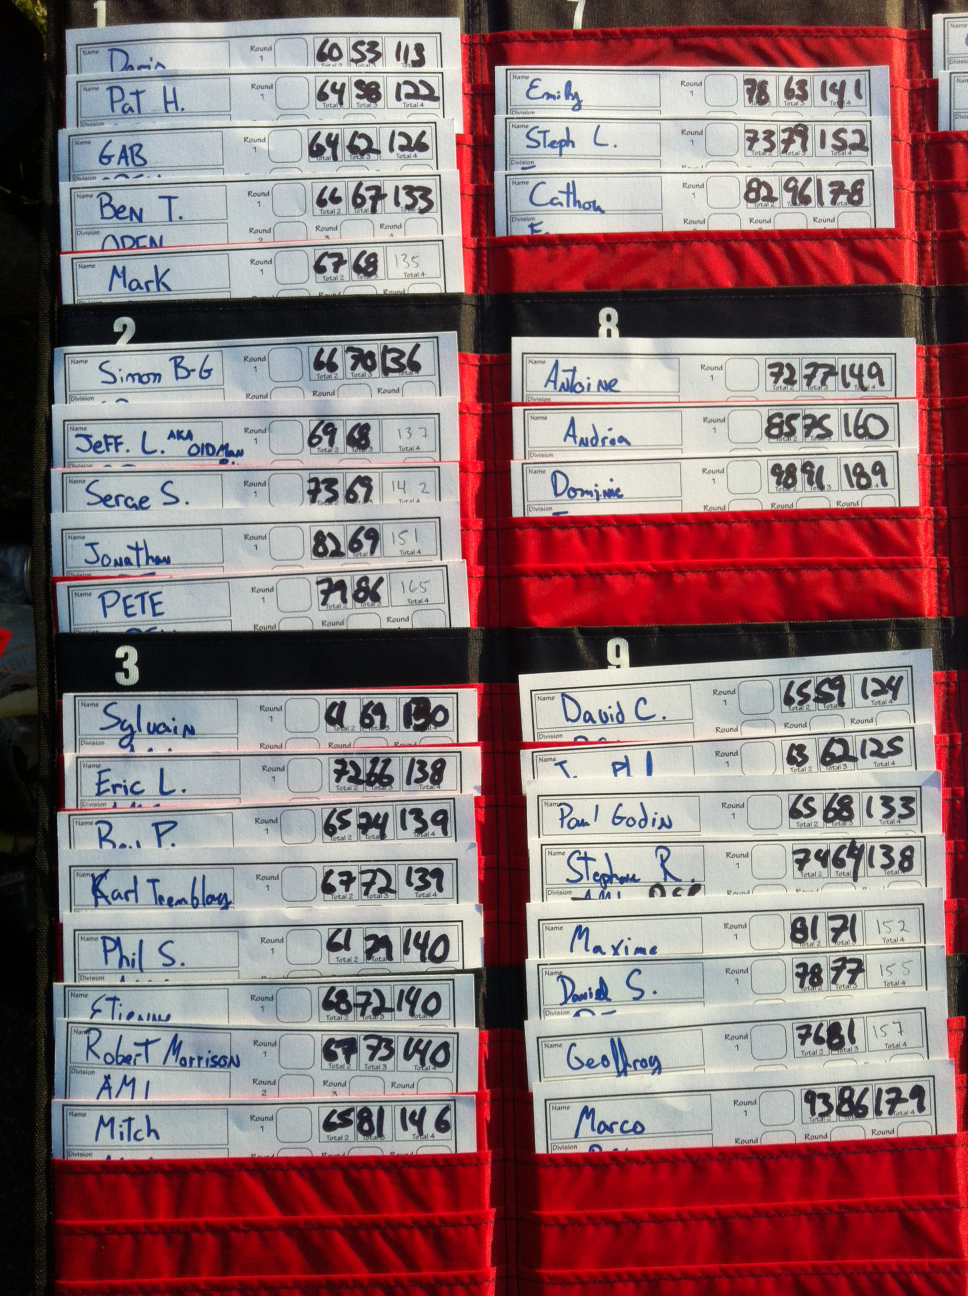 1
Name
Round 1
60 53 113
Name Pat H.
Round 1
64 58 122
Total 4
Division
Name GAB
Round 1
64 62 126
Total 2 Total 3 Total 4
Name Ben T.
Round 1
66 67 133
Total 2 Total 3 Total 4
Division OPEN
Name Mark
Round 1
67 68 135
Total 2 Total 3 Total 4
2
Name Simon B-G
Round 1
66 70 136
Total 2 Total 3 Total 4
Division
Round Round
Name Jeff. L. AKA OlDMan
Round 1
69 68 137
Total 2 Total 3 Total 4
Name Serge S.
Round 1
73 69 142
Total 2 Total 3 Total 4
Name Jonathan
Round 1
82 69 151
Total 2 Total 3 Total 4
Name PETE
Round 1
79 86 165
Total 2 Total 3 Total 4
Round Round
3
Name Sylvain
Round 1
61 69 130
Total 2 Total 3 Total 4
Division
Round Round Round
Name Eric L.
Round 1
72 66 138
Total 2 Total 3 Total 4
Name P.
Round 1
65 74 139
Total 2 Total 3 Total 4
Name Karl Tremblay
Round 1
67 72 139
Total 2 Total 3 Total 4
Name Phil S.
Round 1
61 79 140
Total 2 Total 3 Total 4
Name Etienne
Round 1
68 72 140
Total 2 Total 3 Total 4
Name Robert Morrison
Round 1
67 73 140
Total 2 Total 3 Total 4
Division AMI
Round 2 Round 3 Round
Name Mitch
Round 1
65 81 146
Total 2 Total 3 Total 4
Division
Round Round Round
7
Name Emily
Round 1
78 63 141
Total 2 Total 3 Total 4
Name Steph L.
Round 1
73 79 152
Total 2 Total 3 Total 4
Division
Name
Round 1
82 96 178
Total 2 Total 3 Total 4
8
Name Antoine
Round 1
72 77 149
Total 2 Total 3 Total 4
Division
Name Andria
Round 1
85 75 160
Total 2 Total 3 Total 4
Division
Name Dominic
Round 1
98 91 189
Total 2 Total 3 Total 4
Division
Round Round Round
9
Name David C.
Round 1
65 59 124
Total 2 Total 3 Total 4
Division
Round Round Round
Name
Round 1
63 62 125
Total 2 Total 3 Total 4
Name Paul Godin
Round 1
65 68 133
Total 2 Total 3 Total 4
Name Stephane R.
Round 1
74 64 138
Total 2 Total 3 Total 4
Name Maxime
Round 1
81 71 152
Total 2 Total 3 Total 4
Name Daniel S.
Round 1
78 77 155
Total 2 Total 3 Total 4
Division
Name Geoffroy
Round 1
76 81 157
Total 2 Total 3 Total 4
Name Marco
Round 1
93 86 179
Total 2 Total 3 Total 4
Division
Round Round Round